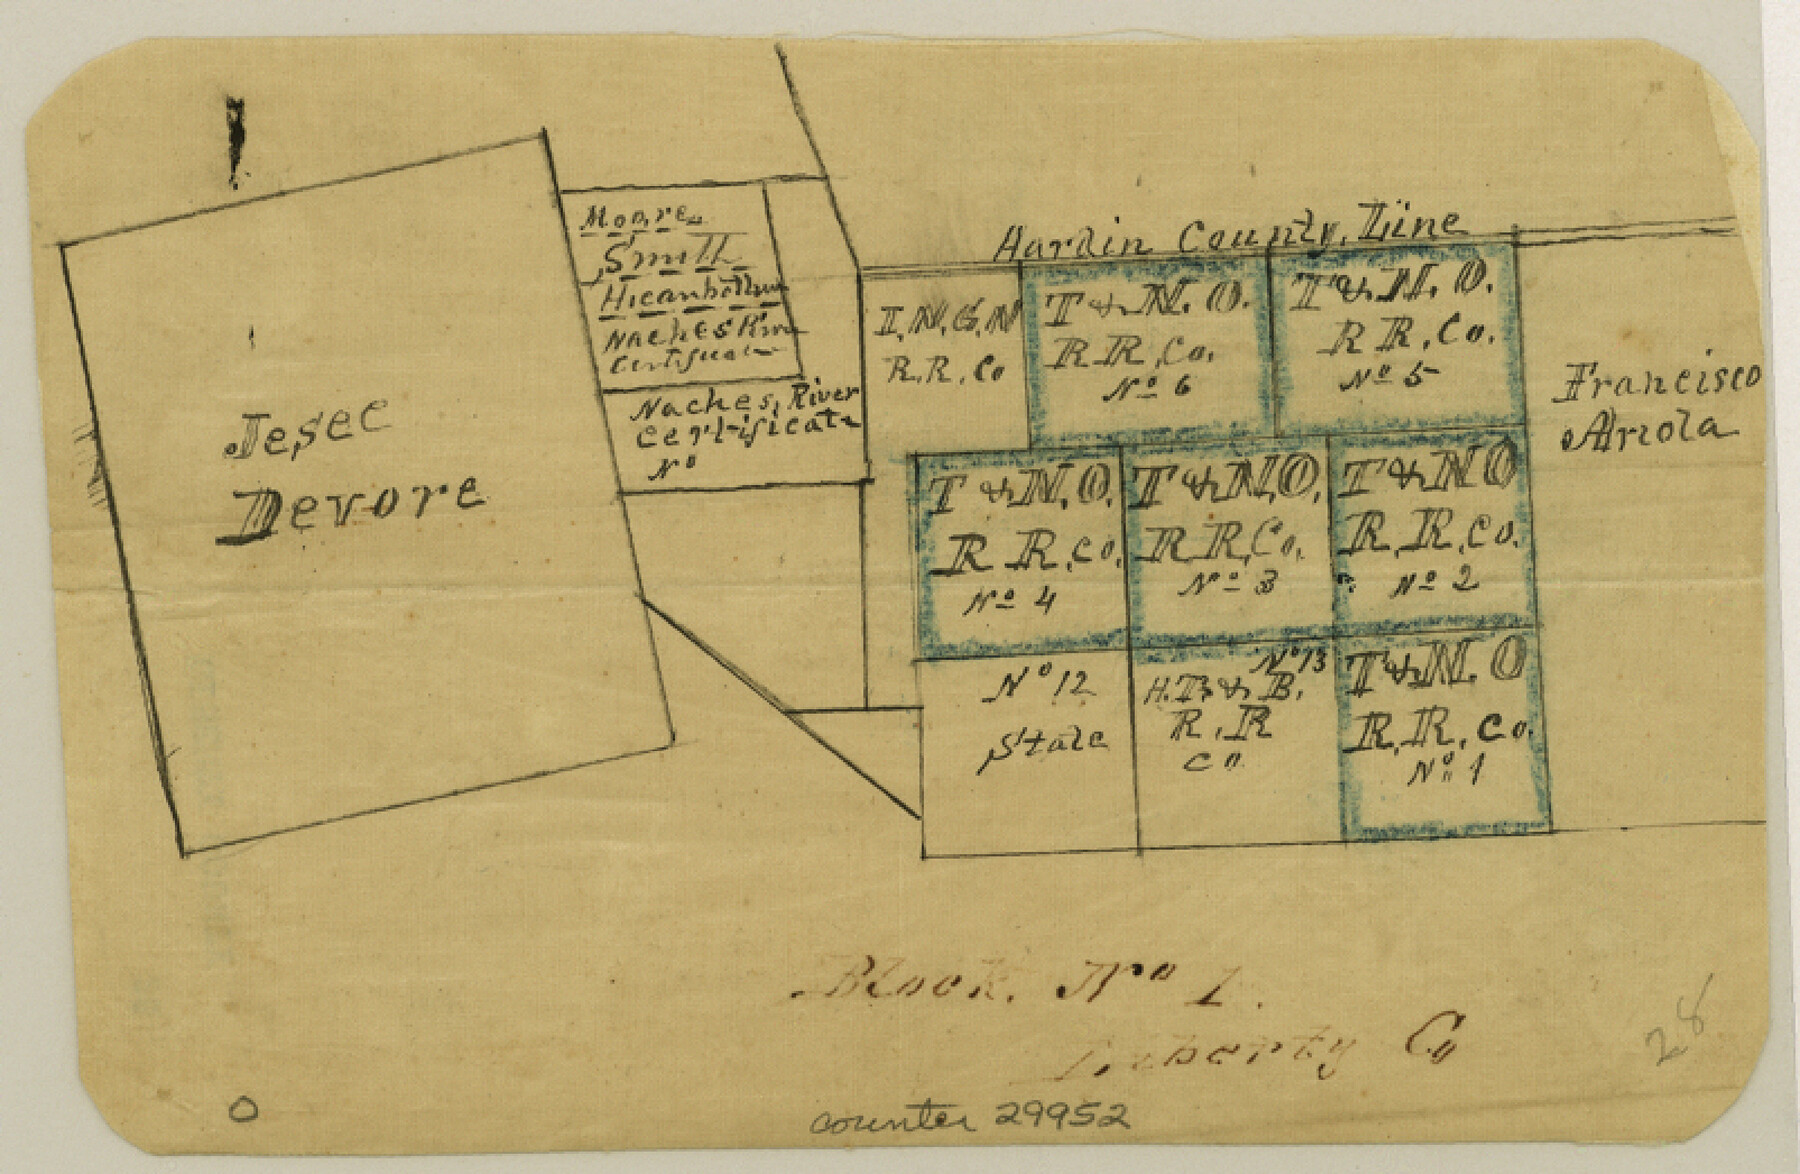 Hardin County, Line
Jesee
Devore
Moore
Smith
Naches River
Certificate
Naches, River
Certificate
Nº
I, N, G, N
R. R, Co
T & N. O.
R R, Co.
Nº 6
T & N. O.
R R, Co.
Nº 5
Francisco
Ariola
T & N, O.
R R, Co.
Nº 4
T & N, O,
R R, Co,
Nº 3
T & N O
R, R, Co.
Nº 2
Nº 12
State
Nº 13
H. B, & B,
R, R
Co
T & N. O
R, R, Co.
Nº 1
Block, Nº 1.
Liberty Co
28
O
counter 29952